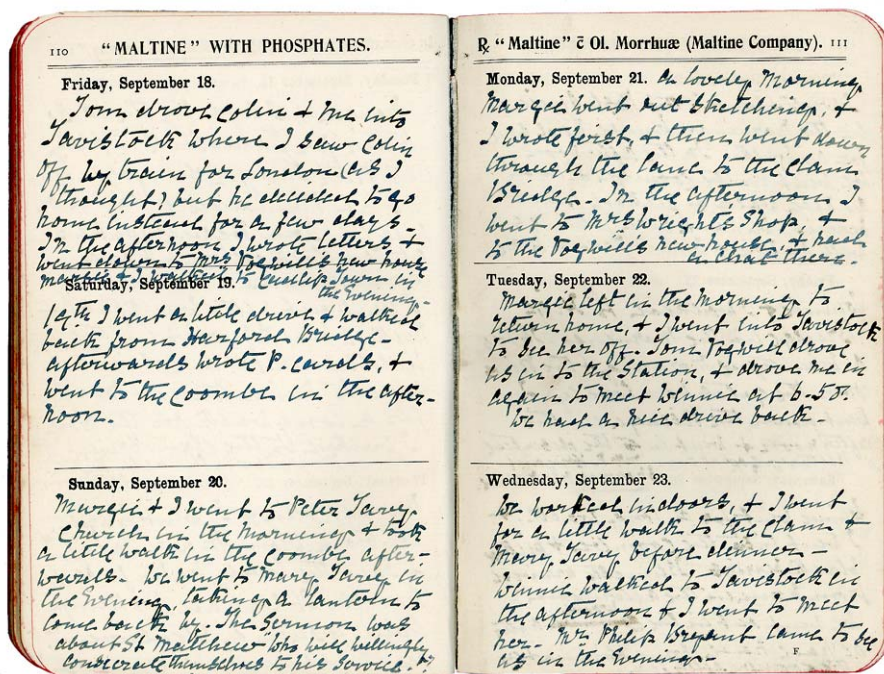 110 "MALTINE" WITH PHOSPHATES.
Friday, September 18.
Tom drove Colin & me into
Tavistock where I saw Colin
off by train for London (as I
thought) but he decided to go
home instead for a few days -
In the afternoon I wrote letters &
went down to Mrs Dogwills new house
Margie & I walked to Cudlip Town in
the Evening -
Saturday, September 19.
19th I went a little drive & walked
back from Harford Bridge -
afterwards wrote P. Cards, &
went to the Coombe in the after-
noon.
Sunday, September 20.
Margie & I went to Peter Tavy
Church in the Morning & took
a little walk in the Coombe after-
wards - We went to Mary Tavy in
the Evening, taking a lantern to
come back by. The Sermon was
about St Matthew "Who will willingly
consecrate themselves to his Service -
℞ "Maltine" c̄ Ol. Morrhuæ (Maltine Company). 111
Monday, September 21. A lovely Morning
Margie went out Sketching, &
I wrote first, & then went down
through the lane to the Clam
Bridge - In the afternoon I
went to Mrs Wrights Shop, &
to the Dogwills new house, & had
a chat there.
Tuesday, September 22.
Margie left in the Morning to
return home, & I went into Tavistock
to see her off. Tom Dogwill drove
us in to the Station, & drove me in
again to meet Winnie at 6-50.
We had a nice drive back -
Wednesday, September 23.
We worked indoors, & I went
for a little walk to the Clam &
Mary Tavy before dinner -
Winnie walked to Tavistock in
the afternoon & I went to meet
her - Mrs Philip Bryant came to see
us in the Evening -
F